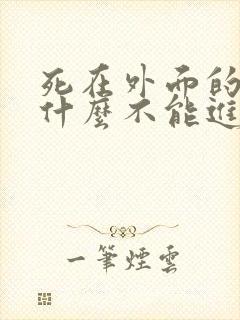 死在外面的
什麼不能進
一筆煙雲